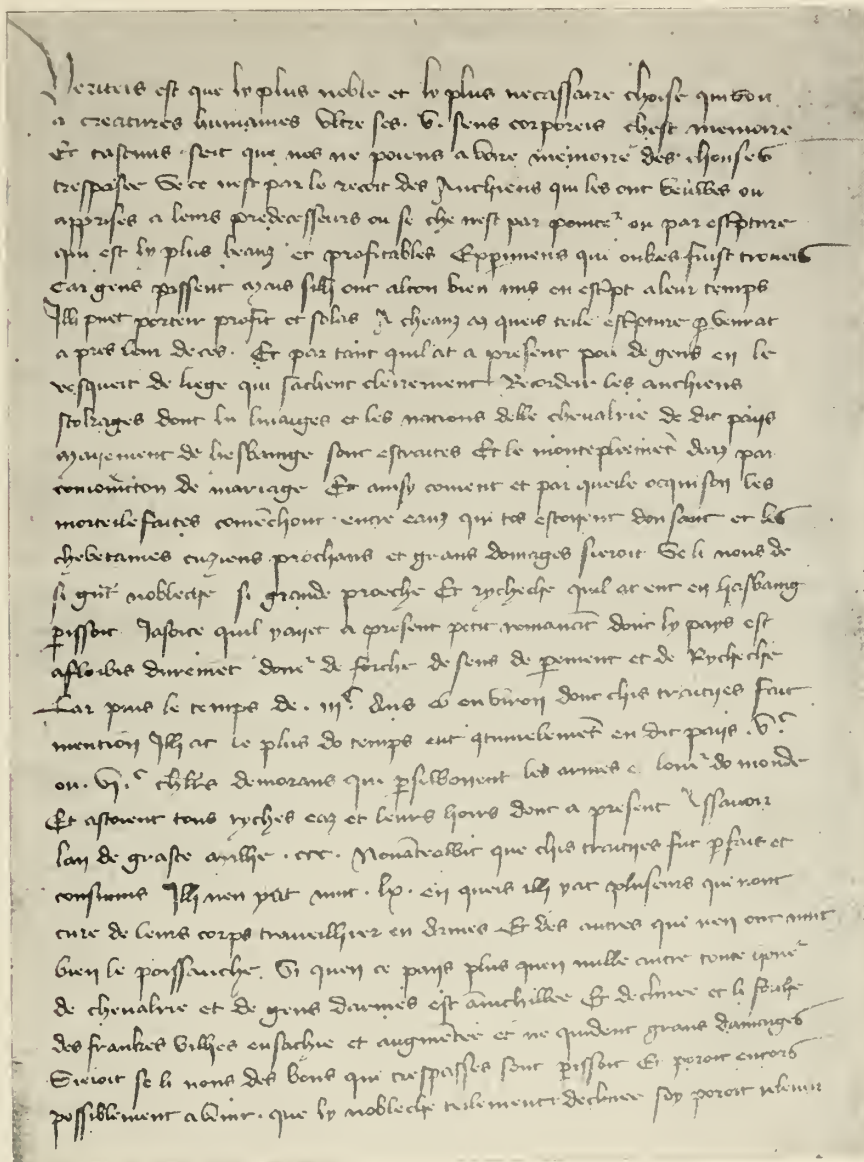 Veriteis est que ly plus noble et ly plus necessaire choise qui soit
a creatures humaines oltre ses .V. sens corporeis chest memoire
Et tasmus soit que nos ne poiens avoire memoire des chouses
trespasee Se ce nest par le recort des Anchiens qui les ont veuwes ou
apprises a leurs predecesseurs ou se che nest par pointe ou par escpture
qui est ly plus beauz et profitables Expimens qui onkes fuist troveis
Car gens pissent mais silh ont alcon bien mis en escpt a leur temps
Ilh puet porteir profit et solas A cheauz az queis teile escpture pvenrat
apres leur deces. Et par tant quil at a present pou de gens en le
vesqueit de liege qui sachent clerement Recordeir les anchiens
de dit pays
mayement de hesbaınge sont estraites Et le monteplieemet deaz par
de mariage Et ainsy coment et par queile ocquison les
morteile faites comēchont entre eauz qui tos estoyent don sanc et les
prochans et grans domages sieroit Se li noms de
si gnt nobleche si grande proeche Et rycheche quil at eut en hasbaing
pissoit Jasoice quil yauet a present petit remanant dont ly pays est
afloibis durement de forche de sens de pement et de Rycheche
Car puis le temps de .iii.c Ans ou environ dont chis traities fait
mention Ilh at le plus do temps eut en dit pays .V.c
ou .VI.c chlrs demorans qui psiwoient les armes do monde
Et astoient tous ryches eaz et leurs hoirs dont a present Assavoir
lan de grasce milhe .ccc. Novāte owit que chis traities fut pfait et
consumis Ilh nen yat nint .lx. en queis ilh yat pluseurs qui nont
cure de leurs corps traveilhier en armes Et des autres qui nen ont nint
bien le poissanche. Si quen ce pays plus quen nulle autre toute
de chevalrie et de gens darmes est anichillee Et declinee et li forche
des frankes vilhes ensachie et augmētee et ne quident grans damages
Sieroit se li noms des bons qui trespasses sont pissoit Et poroit encors
possiblement avenir que ly nobleche teilement declinee soy poroit releveir